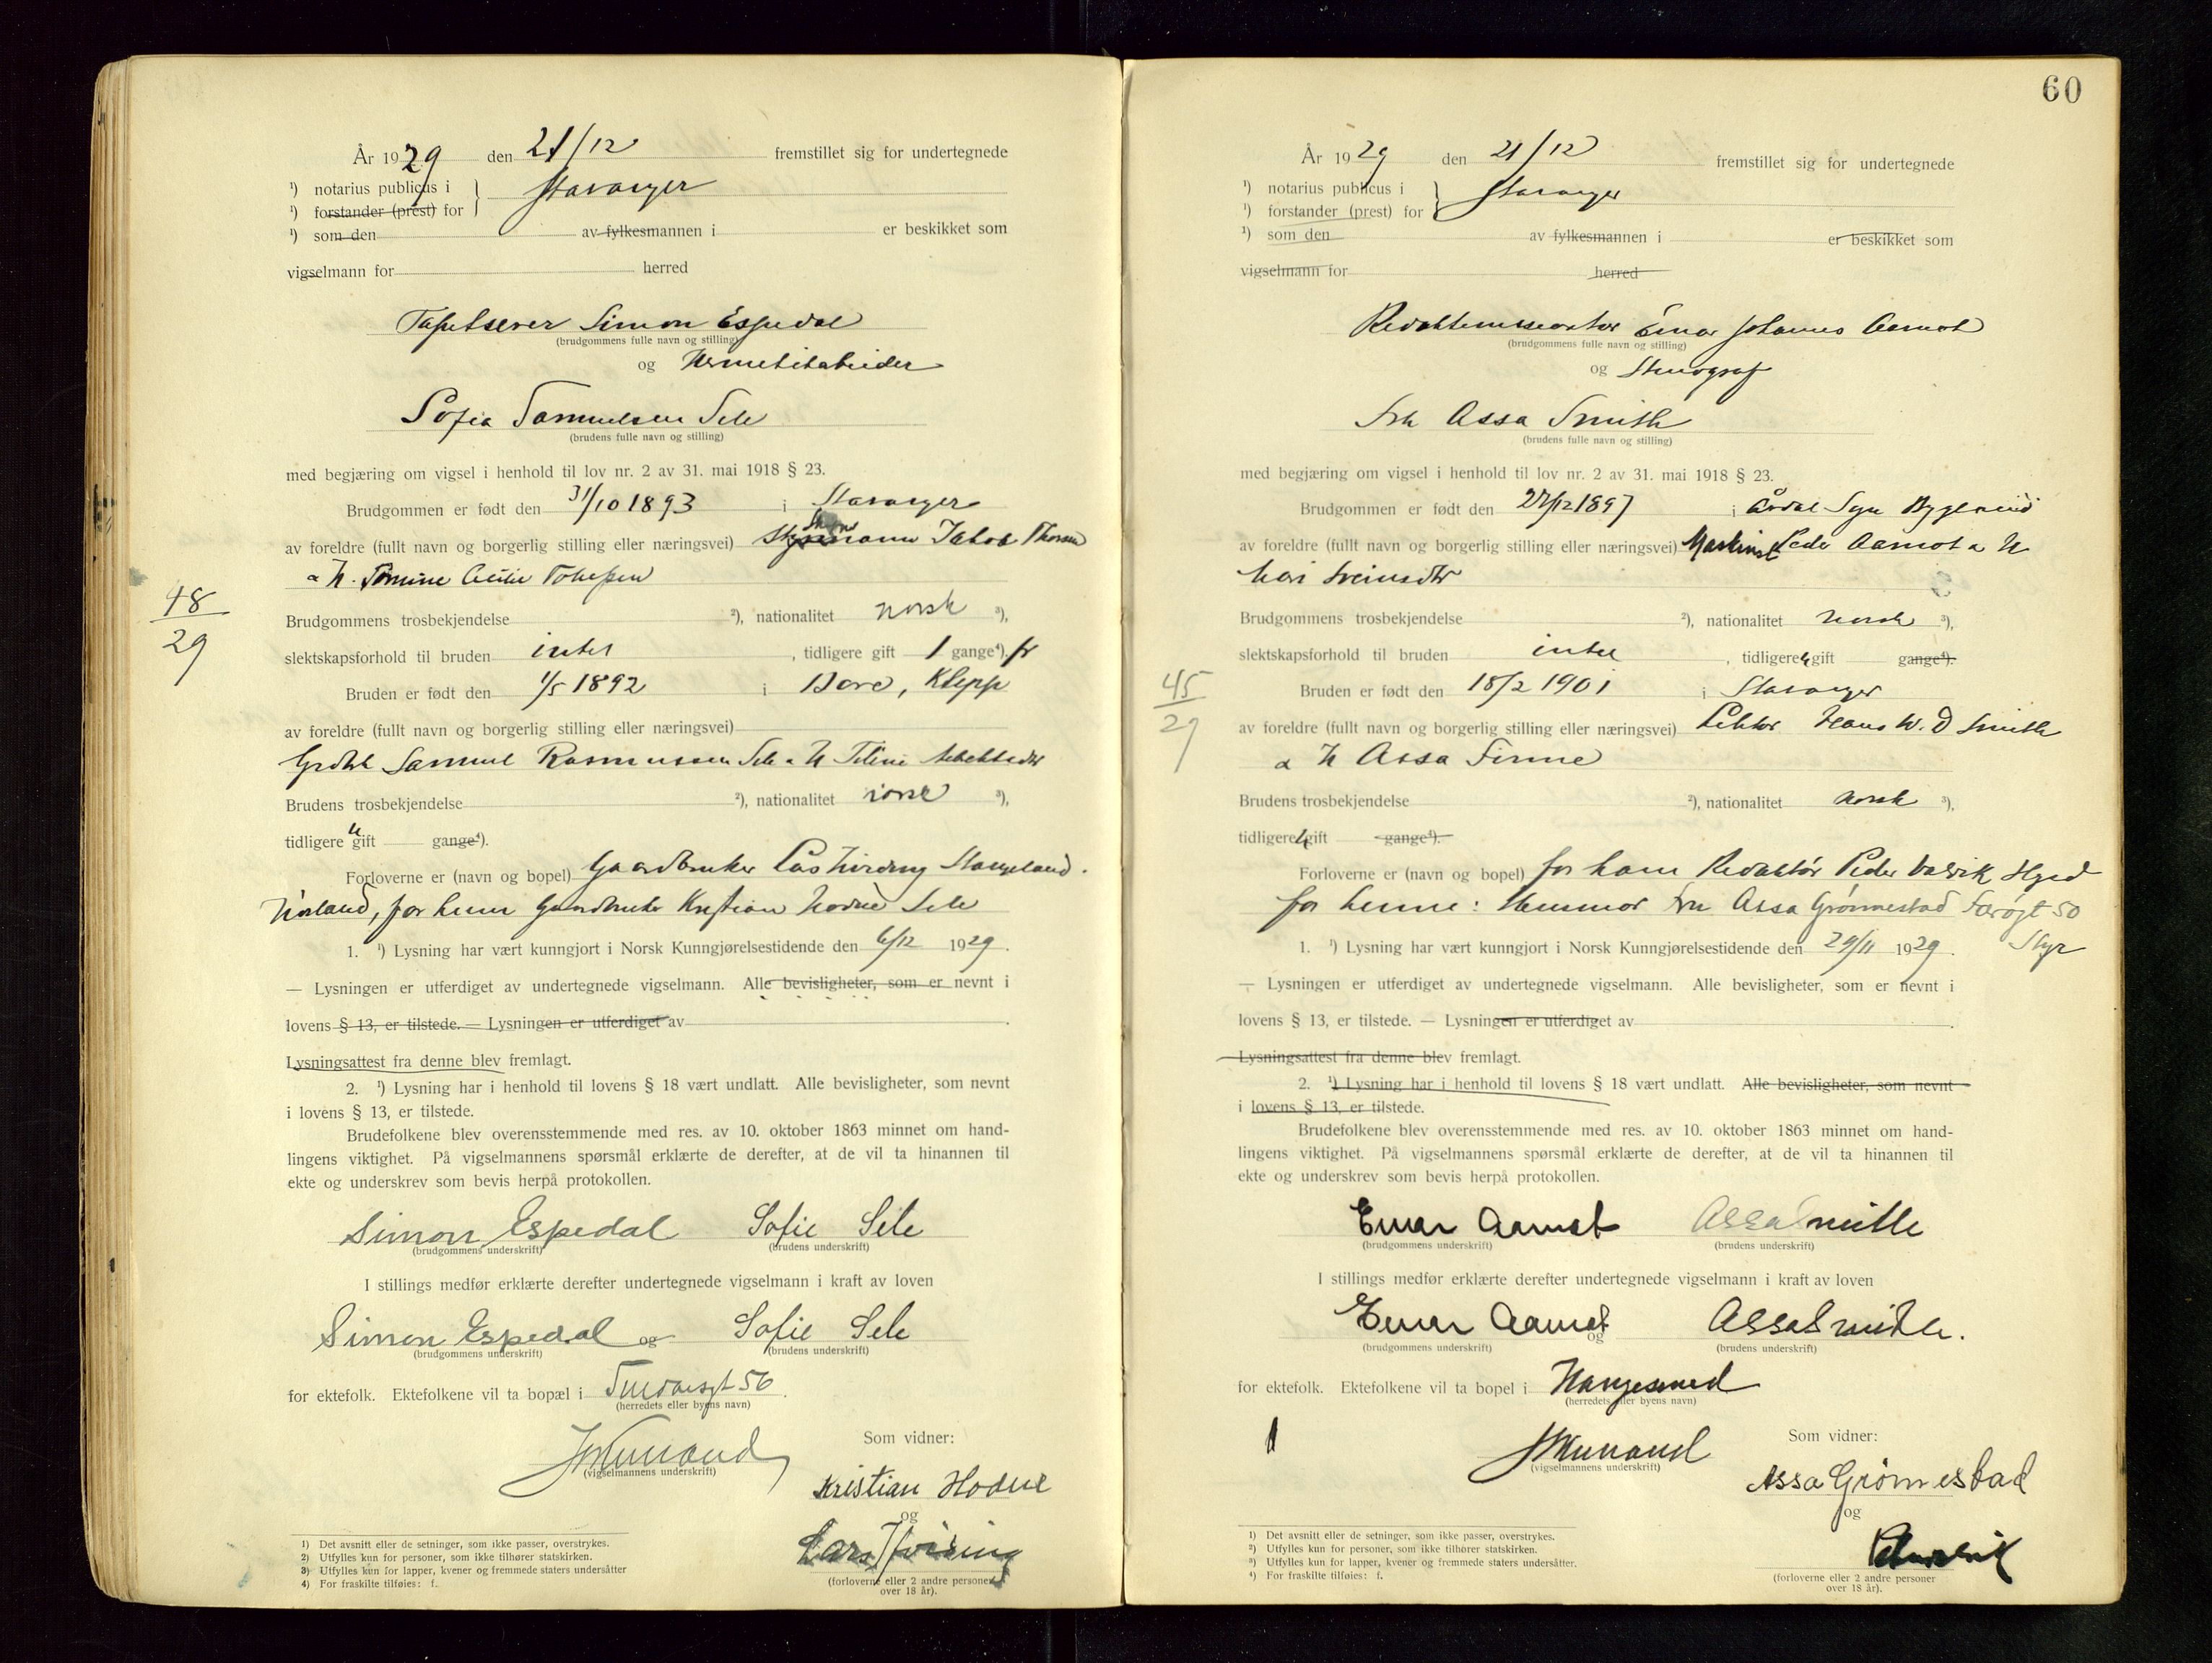 År 1929 den 21/12 fremstillet sig for undertegnede
¹) notarius publicus i } Stavanger
¹) forstander (prest) for
¹) som den av fylkesmannen i er beskikket som
vigselmann for herred
Tapetserer Simon Espedal
(brudgommens fulle navn og stilling)
og Hermetikarbeider
Sofia Samuelsen Sele
(brudens fulle navn og stilling)
med begjæring om vigsel i henhold til lov nr. 2 av 31. mai 1918 § 23.
Brudgommen er født den 31/10 1893 i Stavanger
av foreldre (fullt navn og borgerlig stilling eller næringsvei) Jakob
a H. Tomine Cecilie
48
29
Brudgommens trosbekjendelse ²), nationalitet norsk ³),
slektskapsforhold til bruden intet , tidligere gift 1 gange⁴). fr
Bruden er født den 1/5 1892 i Bore, Klepp
av foreldre (fullt navn og borgerlig stilling eller næringsvei)
Grdbk Samuel Rasmussen Sele a H
Brudens trosbekjendelse ²), nationalitet norsk ³),
tidligere u gift gange⁴).
Forloverne er (navn og bopel) Gaardbruker Lars Stangeland.
for henne Gaardbruker Kristian Hodne Sele
1. ¹) Lysning har vært kunngjort i Norsk Kunngjørelsestidende den 6/12 1929.
— Lysningen er utferdiget av undertegnede vigselmann. Alle bevisligheter, som er nevnt i
lovens § 13, er tilstede. — Lysningen er utferdiget av .
Lysningsattest fra denne blev fremlagt.
2. ¹) Lysning har i henhold til lovens § 18 vært undlatt. Alle bevisligheter, som nevnt
i lovens § 13, er tilstede.
Brudefolkene blev overensstemmende med res. av 10. oktober 1863 minnet om hand-
lingens viktighet. På vigselmannens spørsmål erklærte de derefter, at de vil ta hinannen til
ekte og underskrev som bevis herpå protokollen.
Simon Espedal Sofie Sele
(brudgommens underskrift) (brudens underskrift)
I stillings medfør erklærte derefter undertegnede vigselmann i kraft av loven
Simon Espedal og Sofie Sele
(brudgommens underskrift) (brudens underskrift)
for ektefolk. Ektefolkene vil ta bopæl i 56.
(herredets eller byens navn)
(vigselmannens underskrift)
Som vidner:
Kristian Hodne
og
Lars
(forloverne eller 2 andre personer
over 18 år).
1) Det avsnitt eller de setninger, som ikke passer, overstrykes.
2) Utfylles kun for personer, som ikke tilhører statskirken.
3) Utfylles kun for lapper, kvener og fremmede staters undersåtter
4) For fraskilte tilføies: f.
60
År 1929 den 21/12 fremstillet sig for undertegnede
¹) notarius publicus i } Stavanger
¹) forstander (prest) for
¹) som den av fylkesmannen i er beskikket som
vigselmann for herred
Redaktionssekretær Einar Johannes Aamot
(brudgommens fulle navn og stilling)
og Stenograf
Frk Assa Smith
(brudens fulle navn og stilling)
med begjæring om vigsel i henhold til lov nr. 2 av 31. mai 1918 § 23.
Brudgommen er født den 27/12 1897 i Årdal Sogn
av foreldre (fullt navn og borgerlig stilling eller næringsvei) Maskinist Peder Aamot a H
Brudgommens trosbekjendelse ²), nationalitet norsk ³),
slektskapsforhold til bruden intet , tidligere u gift gange⁴).
45
29
Bruden er født den 18/2 1901 i Stavanger
av foreldre (fullt navn og borgerlig stilling eller næringsvei) Lektor Hans W. D Smith
a H Assa Finne
Brudens trosbekjendelse ²), nationalitet norsk ³),
tidligere u gift gange⁴).
Forloverne er (navn og bopel) for ham Redaktør Peder
for henne: Fru Assa Grønnestad 50
1. ¹) Lysning har vært kunngjort i Norsk Kunngjørelsestidende den 29/11 1929.
— Lysningen er utferdiget av undertegnede vigselmann. Alle bevisligheter, som er nevnt i
lovens § 13, er tilstede. — Lysningen er utferdiget av .
Lysningsattest fra denne blev fremlagt.
2. ¹) Lysning har i henhold til lovens § 18 vært undlatt. Alle bevisligheter, som nevnt
i lovens § 13, er tilstede.
Brudefolkene blev overensstemmende med res. av 10. oktober 1863 minnet om hand-
lingens viktighet. På vigselmannens spørsmål erklærte de derefter, at de vil ta hinannen til
ekte og underskrev som bevis herpå protokollen.
Einar Aamot Assa Smith
(brudgommens underskrift) (brudens underskrift)
I stillings medfør erklærte derefter undertegnede vigselmann i kraft av loven
Einar Aamot og Assa Smith.
(brudgommens underskrift) (brudens underskrift)
for ektefolk. Ektefolkene vil ta bopel i Haugesund
(herredets eller byens navn)
(vigselmannens underskrift)
Som vidner:
Assa Grønnestad
og
(forloverne eller 2 andre personer
over 18 år).
¹) Det avsnitt eller de setninger, som ikke passer, overstrykes.
²) Utfylles kun for personer, som ikke tilhører statskirken.
³) Utfylles kun for lapper, kvener og fremmede staters undersåtter.
⁴) For fraskilte tilføies: f.